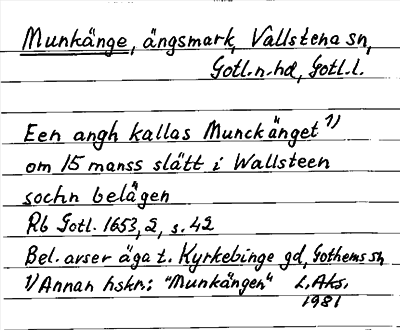 Munkänge, ängsmark, Vallstena sn,
Gotl.n.hd, Gotl.l.
Een angh kallas Munckänget 1)
om 15 manss slätt i Wallsteen
sochn belägen
Rb Gotl. 1653, 2, s. 42
Bel. avser äga t. Kyrkebinge gd, Gothems sn
1) Annan hskr.: "Munkängen" L.Aks.
1981